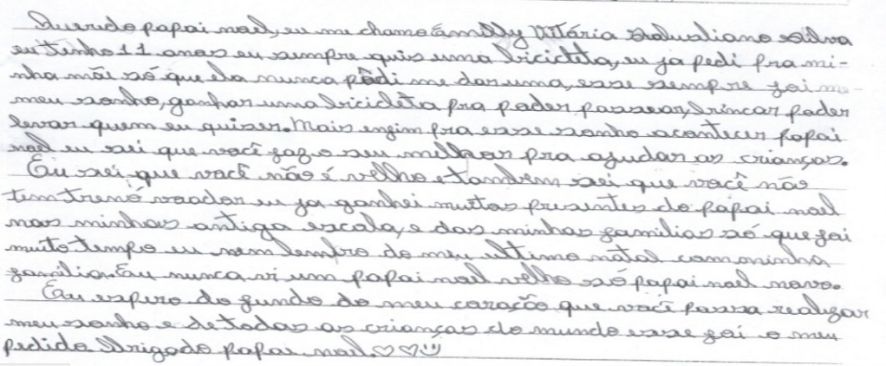 Querido papai noel, eu me chamo ámilly Vitária Salusliano Silva
eu tenho 11 anos eu sempre quis uma bicicleta, eu ja pedi pra mi-
nha mãi só que ela nunca pôdi me dar uma, esse sempre foi mo
meu sonho, ganhar uma bicicleta pra poder passear, brincar poder
levar quem eu quiser. Mais enfim pra esse sonho acontecer papai
noel eu sei que você faz o seu milhor pra ajudar as crianças.
Eu sei que você não é velho e também sei que você não
tem trenó voador eu ja ganhei muitos presentes do papai noel
nas minhas antiga escola, e das minhas familias só que foi
muito tempo eu nem lembro do meu ultimo natal com minha
familia. Eu nunca vi um papai noel velho só papai noel novo.
Eu espero do fundo do meu coração que você possa realizar
meu sonho e de todas as crianças do mundo esse foi o meu
pedido Obrigado papai noel.♡♡☺